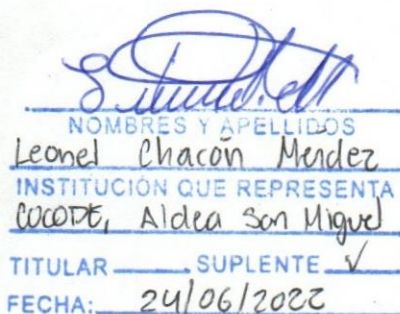 NOMBRES Y APELLIDOS
Leonel Chacón Mendez
INSTITUCIÓN QUE REPRESENTA
COCODE, Aldea San Miguel
TITULAR ______ SUPLENTE ✓
FECHA: 24/06/2022